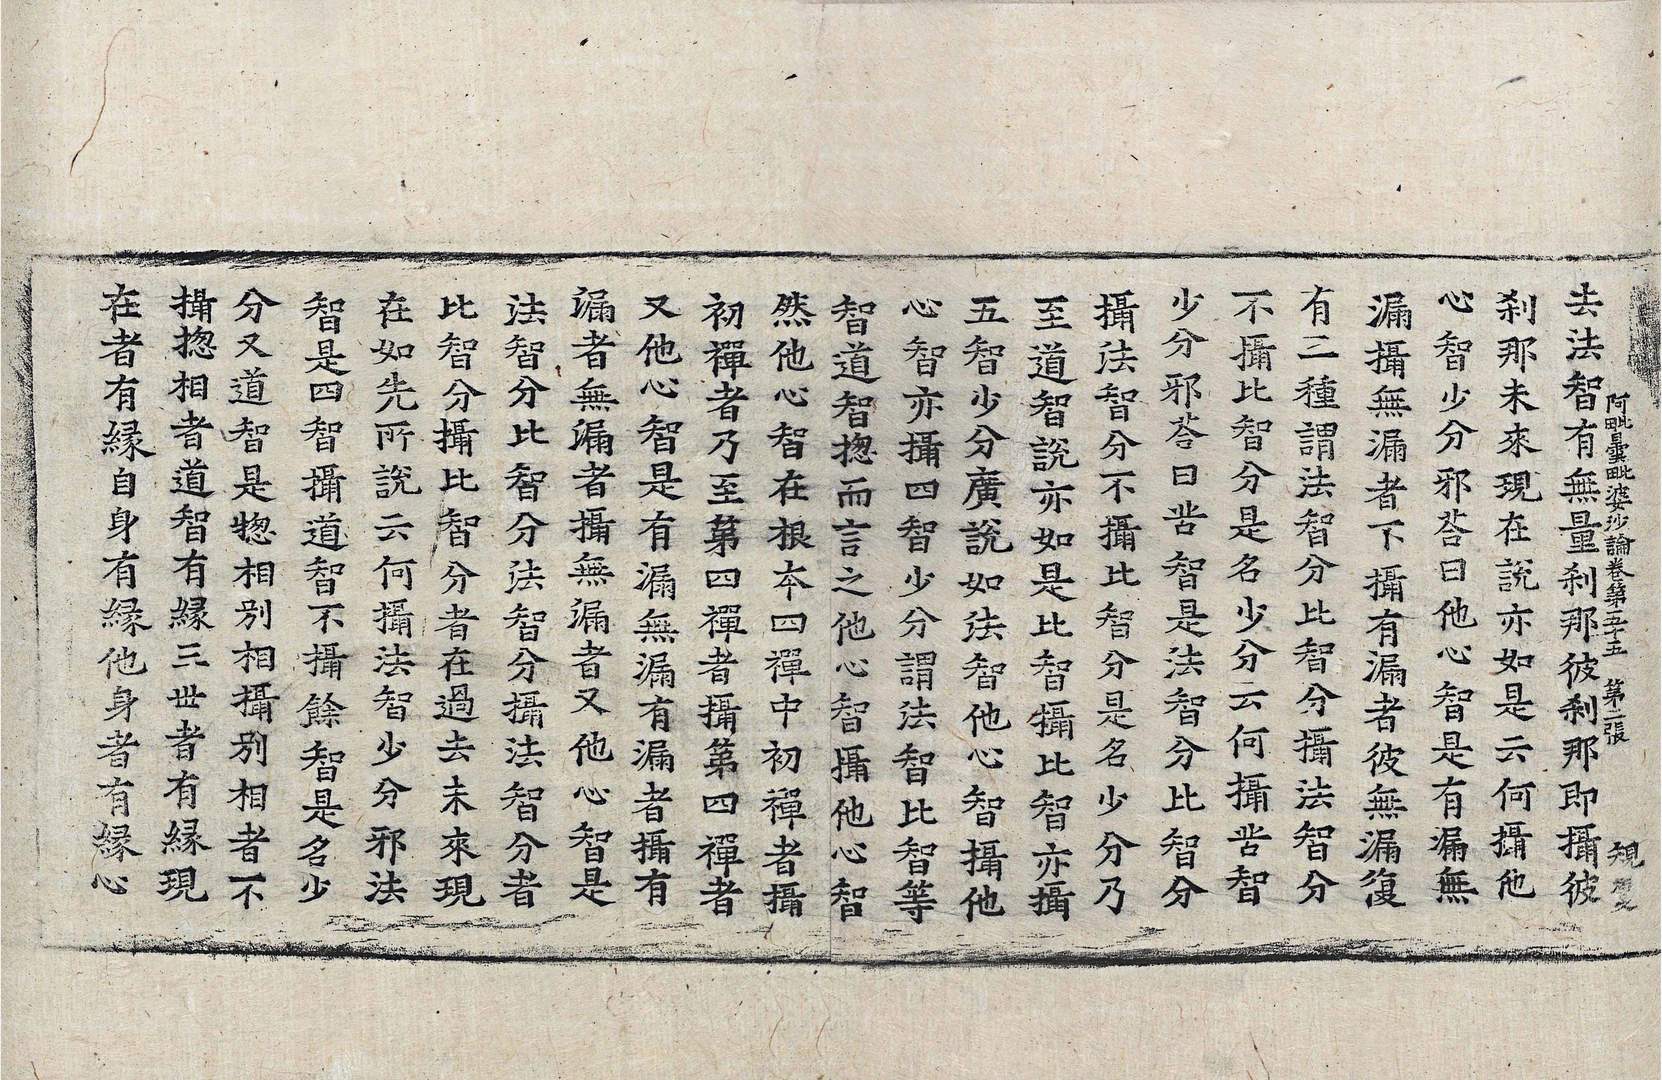 阿毗曇毗婆沙論卷第五十五　第二張　規
去法智有無量刹那彼刹那即攝彼
刹那未來現在說亦如是云何攝他
心智少分邪荅曰他心智是有漏無
漏攝無漏者不攝有漏者彼無漏復
有二種謂法智分比智分攝法智分
不攝比智分是名少分云何攝苦智
少分邪荅曰苦智是法智分比智分
攝法智分不攝比智分是名少分乃
至道智說亦如是比智攝比智亦攝
五智少分廣說如法智他心智攝他
心智亦攝四智少分謂法智比智等
智道智揔而言之他心智攝他心智
然他心智在根夲四禪中初禪者攝
初禪者乃至第四禪者攝第四禪者
又他心智是有漏無漏有漏者攝有
漏者無漏者攝無漏者又他心智是
法智分比智分法智分攝法智分者
比智分攝比智分者在過去未來現
在如先所說云何攝法智少分邪法
智是四智攝道智不攝餘智是名少
分又道智是惣相別相攝別相者不
攝揔相者道智有緣三世者有緣現
在者有緣自身有緣他身者有緣心